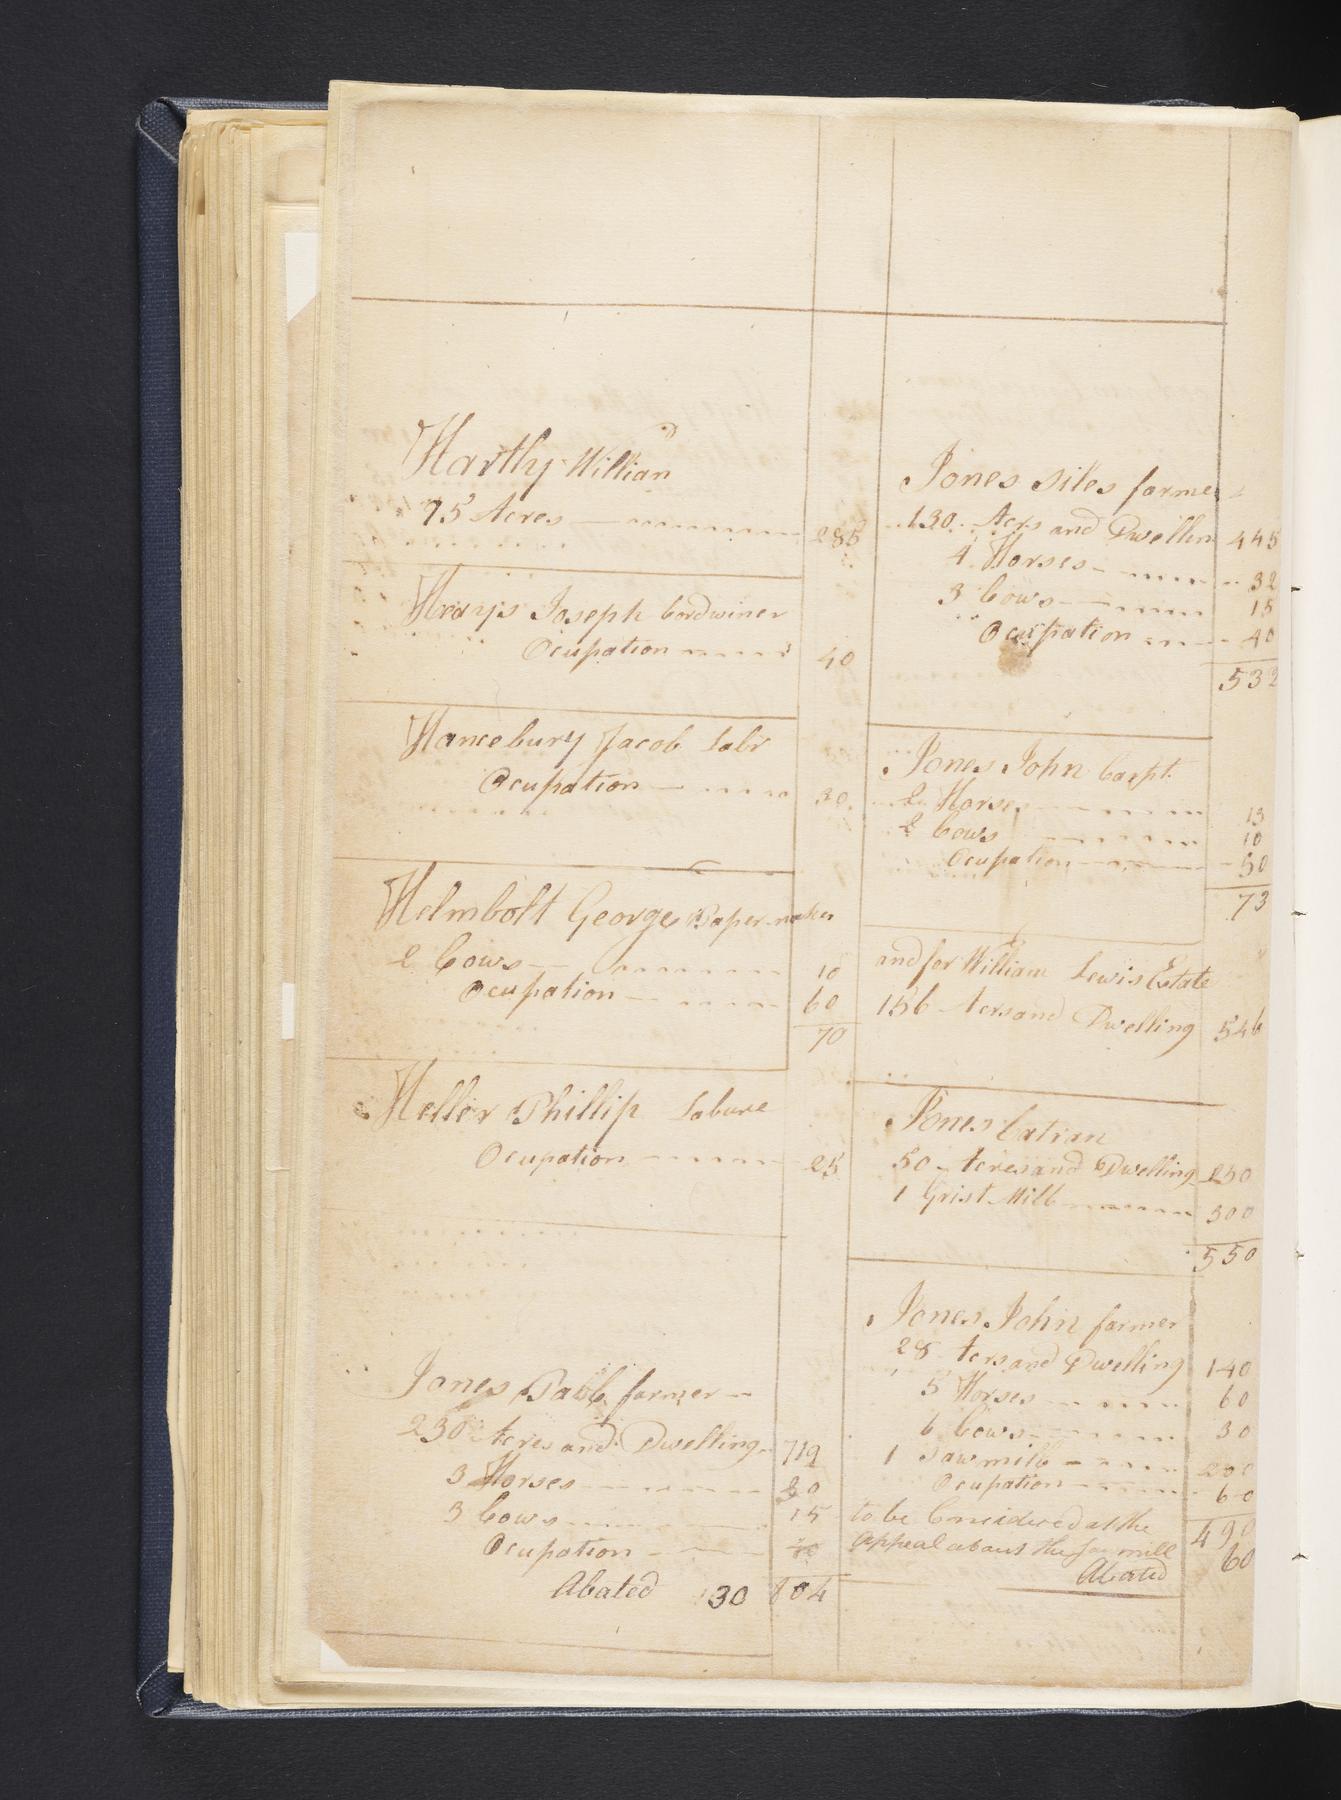 Harthy William
75 Acres 285
Hrays Joseph Cordwiner
Ocupation 40
Hancebury Jacob Labr
Ocupation 30
Helmbolt George Paper maker
2 Cows 10
Ocupation 60
70
Heller Phillip Labure
Ocupation 25
Jones farmer
230 Acres and Dwelling 719
3 Horses 30
3 Cows 15
Ocupation 40
Abated 30 804
Jones Siles farmer
130 Acrs and Dwellin 445
4 Horses 32
3 Cows 15
Ocupation 40
532
Jones John Carpt.
2 Horses 13
2 Cows 10
Ocupation 50
73
and for William Lewis Estate
156 Acrs and Dwelling 546
Jones Catran
50 Acres and Dwelling 250
1 Grist Mill 300
550
Jones John farmer
28 Acrs and Dwelling 140
5 Horses 60
6 Cows 30
1 Sawmill 200
Ocupation 60
to be Considered at the 490
Appeal about the saw mill 60
Abated